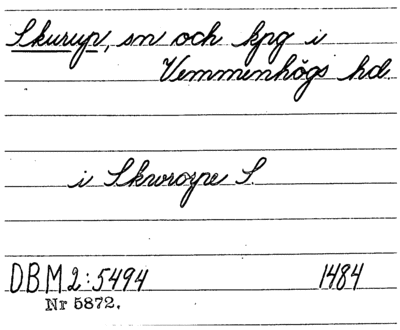 Skurup, sn och kpg i
Vemmenhögs hd.
i Skworope S.
DBM 2:5494 1484
Nr 5872.